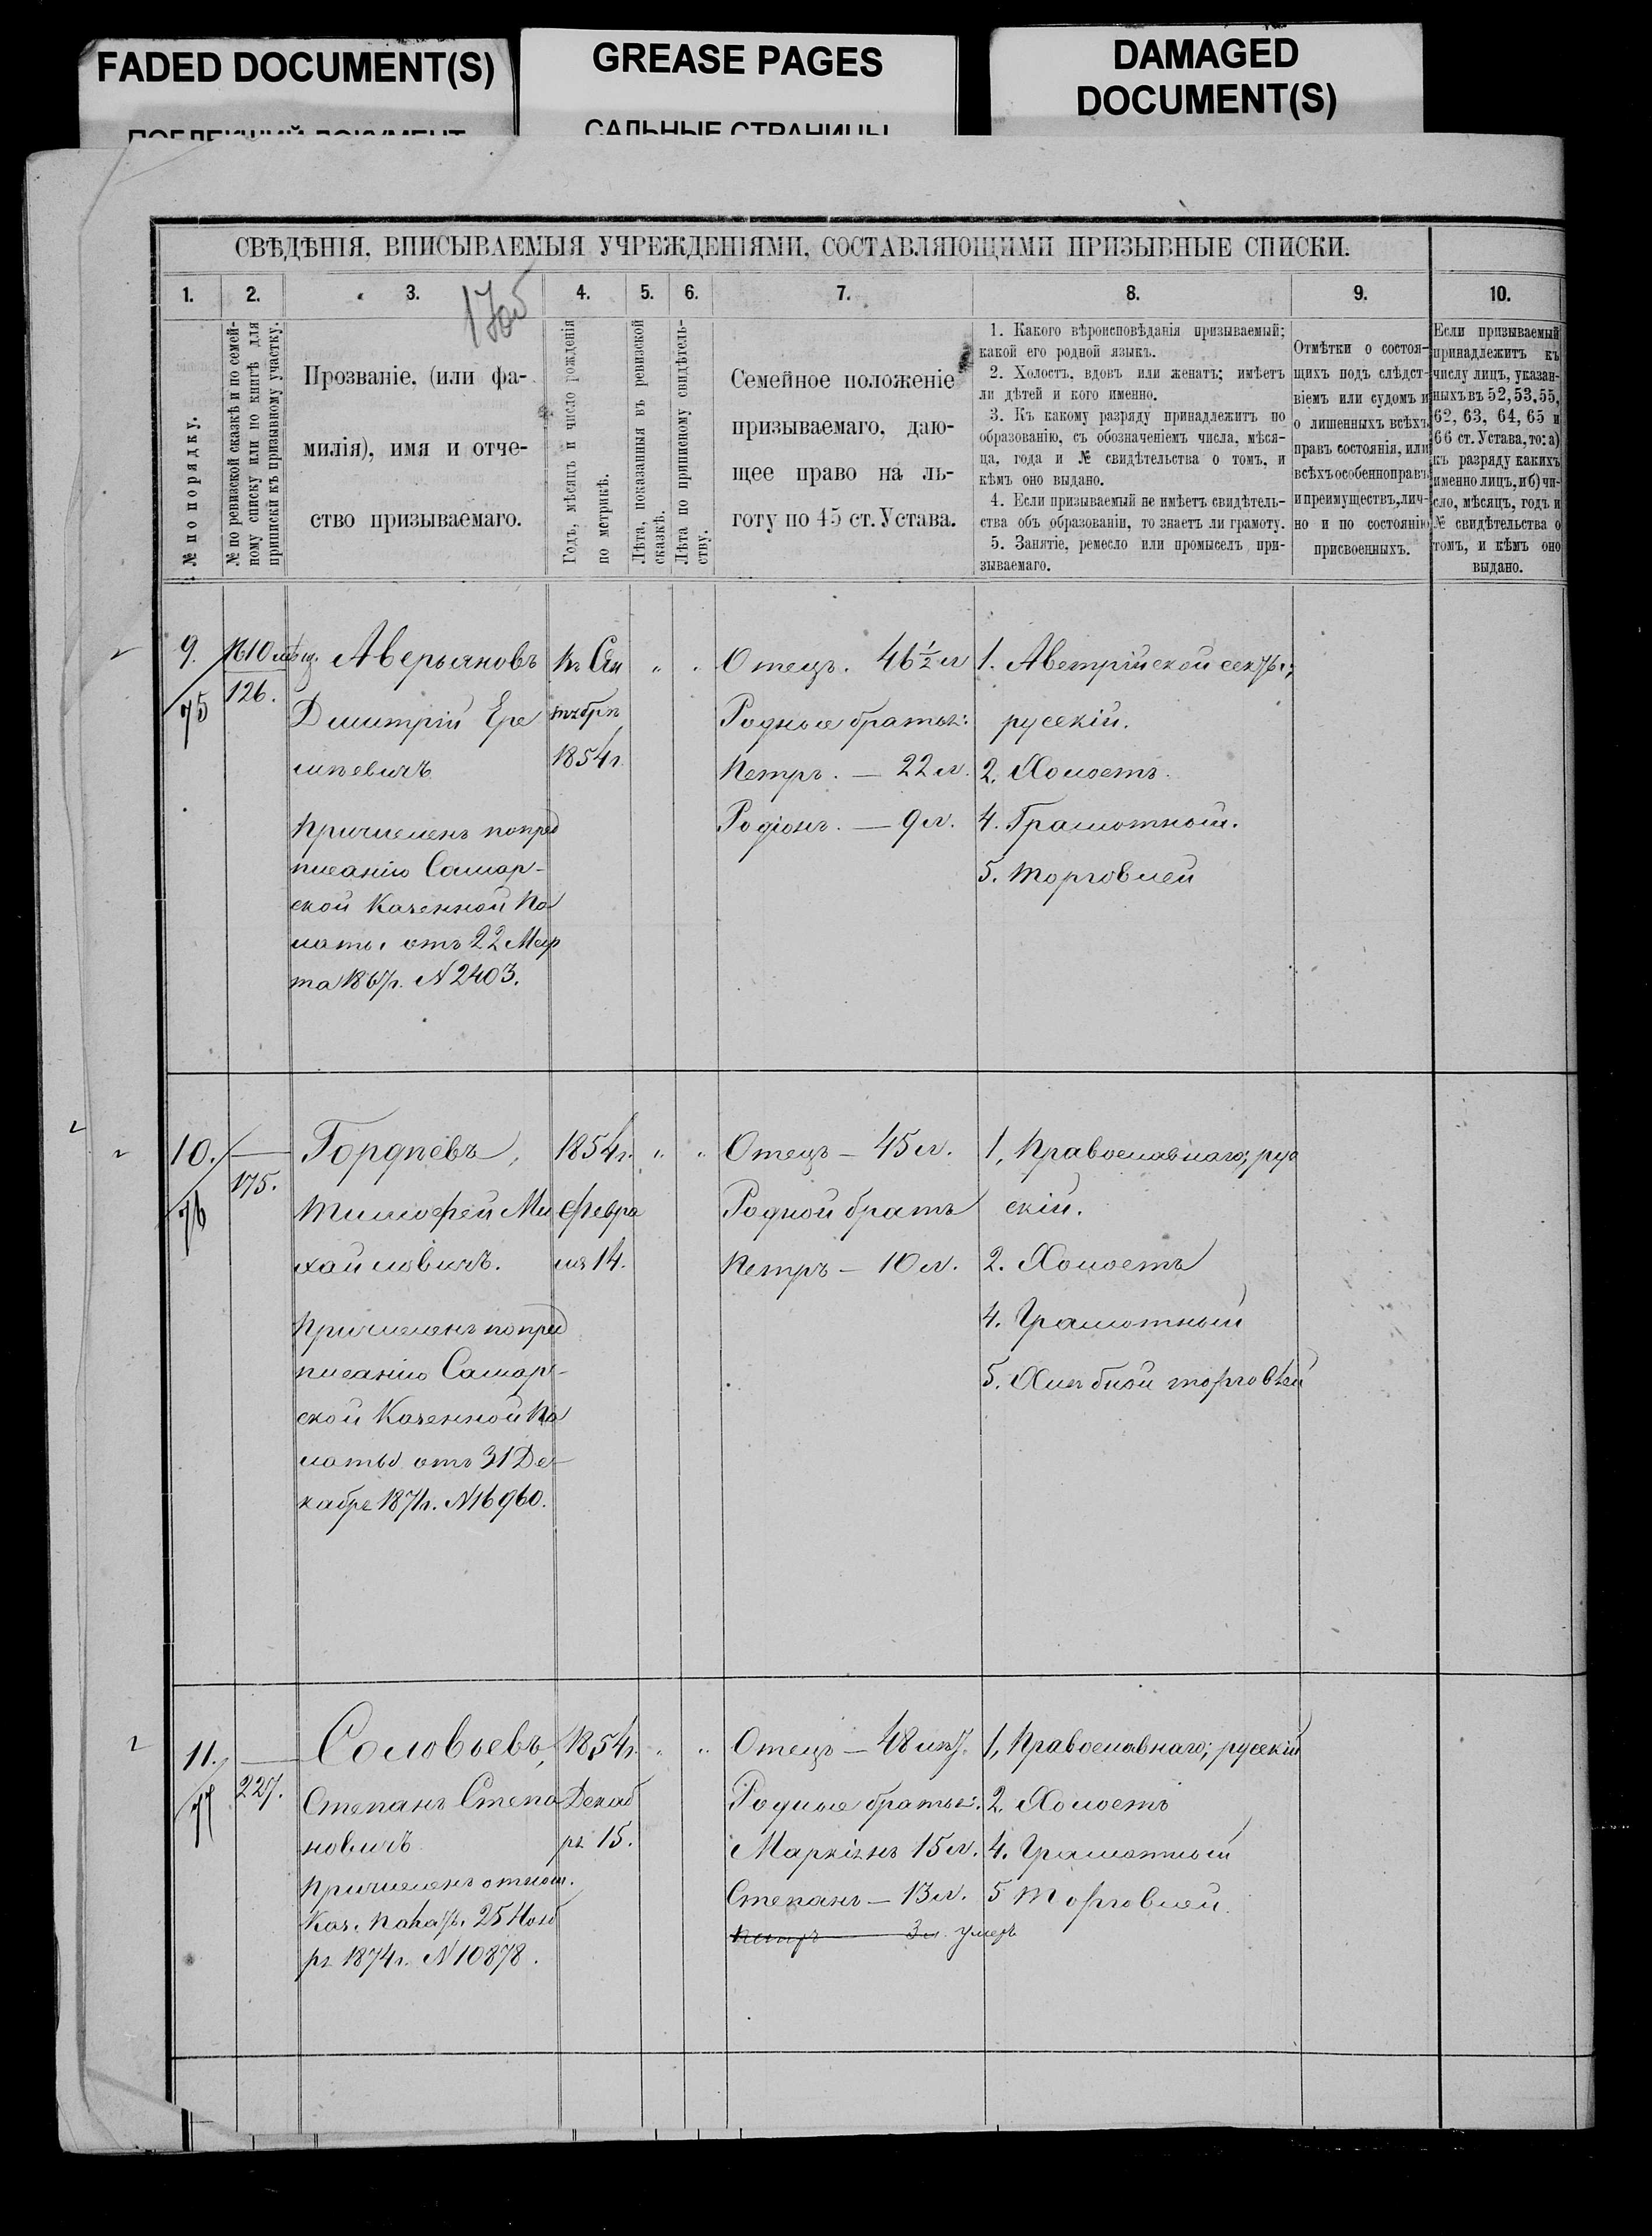 FADED DOCUMENT(S)
GREASE PAGES
САЛЬНЫЕ СТРАНИЦЫ
DAMAGED
DOCUMENT(S)
СВѢДѢНІЯ, ВПИСЫВАЕМЫЯ УЧРЕЖДЕНІЯМИ, СОСТАВЛЯЮЩИМИ ПРИЗЫВНЫЕ СПИСКИ.
1.
2.
3.
4.
5.
6.
7.
8.
9.
10.
№ по порядку.
№ по ревизской сказкѣ и по семей-
ному списку или по книгѣ для
приписки къ призывному участку.
Прозваніе, (или фа-
милія), имя и отче-
ство призываемаго.
Годъ, мѣсяцъ и число рожденія
по метрикѣ.
Лѣта, показанныя въ ревизской
сказкѣ.
Лѣта по приписному свидѣтель-
ству.
Семейное положеніе
призываемаго, даю-
щее право на ль-
готу по 45 ст. Устава.
1. Какого вѣроисповѣданія призываемый;
какой его родной языкъ.
2. Холостъ, вдовъ или женатъ; имѣетъ
ли дѣтей и кого именно.
3. Къ какому разряду принадлежитъ по
образованію, съ обозначеніемъ числа, мѣся-
ца, года и № свидѣтельства о томъ, и
кѣмъ оно выдано.
4. Если призываемый не имѣетъ свидѣтель-
ства объ образованіи, то знаетъ ли грамоту.
5. Занятіе, ремесло или промыселъ при-
зываемаго.
Отмѣтки о состоя-
щихъ подъ слѣдст-
віемъ или судомъ и
о лишенныхъ всѣхъ
правъ состоянія, или
всѣхъ особенно правъ
и преимуществъ, лич-
но и по состоянію
присвоенныхъ.
Если призываемый
принадлежитъ къ
числу лицъ, указан-
ныхъ въ 52, 53, 55,
62, 63, 64, 65 и
66 ст. Устава, то: а)
къ разряду какихъ
именно лицъ, и б) чи-
сло, мѣсяцъ, годъ и
№ свидѣтельства о
томъ, и кѣмъ оно
выдано.
9.
75
126.
Аверьяновъ
Дмитрій Ере
мѣевичъ
Причисленъ по пред
писанію Самар-
ской Казенной Па
латы отъ 22 Мар
та 186 г. N 2403.
тября
1854 г.
Отецъ. 46 ½ л
Родные братья:
Петръ. — 22 л.
Родіонъ. — 9 л.
1. Австрійской секты;
русскій.
2. Холостъ.
4. Грамотный.
5. Торговлей
10.
76
175.
Гордѣевъ,
Тимофей Ми
хайловичъ.
Причисленъ по пред
писанію Самар-
ской Казенной Па
латы отъ 31 Де-
кабря 1871 г. N 16960.
1854 г.
Февра
ля 14.
Отецъ — 45 л.
Родной братъ
Петръ — 10 л.
1, Православнаго; рус
скій.
2. Холостъ
4. Грамотный
5. Хлѣбной торговлей
11.
77
227.
Соловьевъ,
Степанъ Степа
новичъ
Причисленъ отнош.
Каз. Палаты. 25 Нояб
ря 1874 г. N 10878.
1854 г.
Декаб
ря 15.
Отецъ — 48 лѣт.
Родные братья:
Маркіанъ 15 л.
Степанъ — 13 л.
Петръ — 3 л. умеръ
1, Православнаго; русскій
2. Холостъ
4. Грамотный
5 Торговлей.